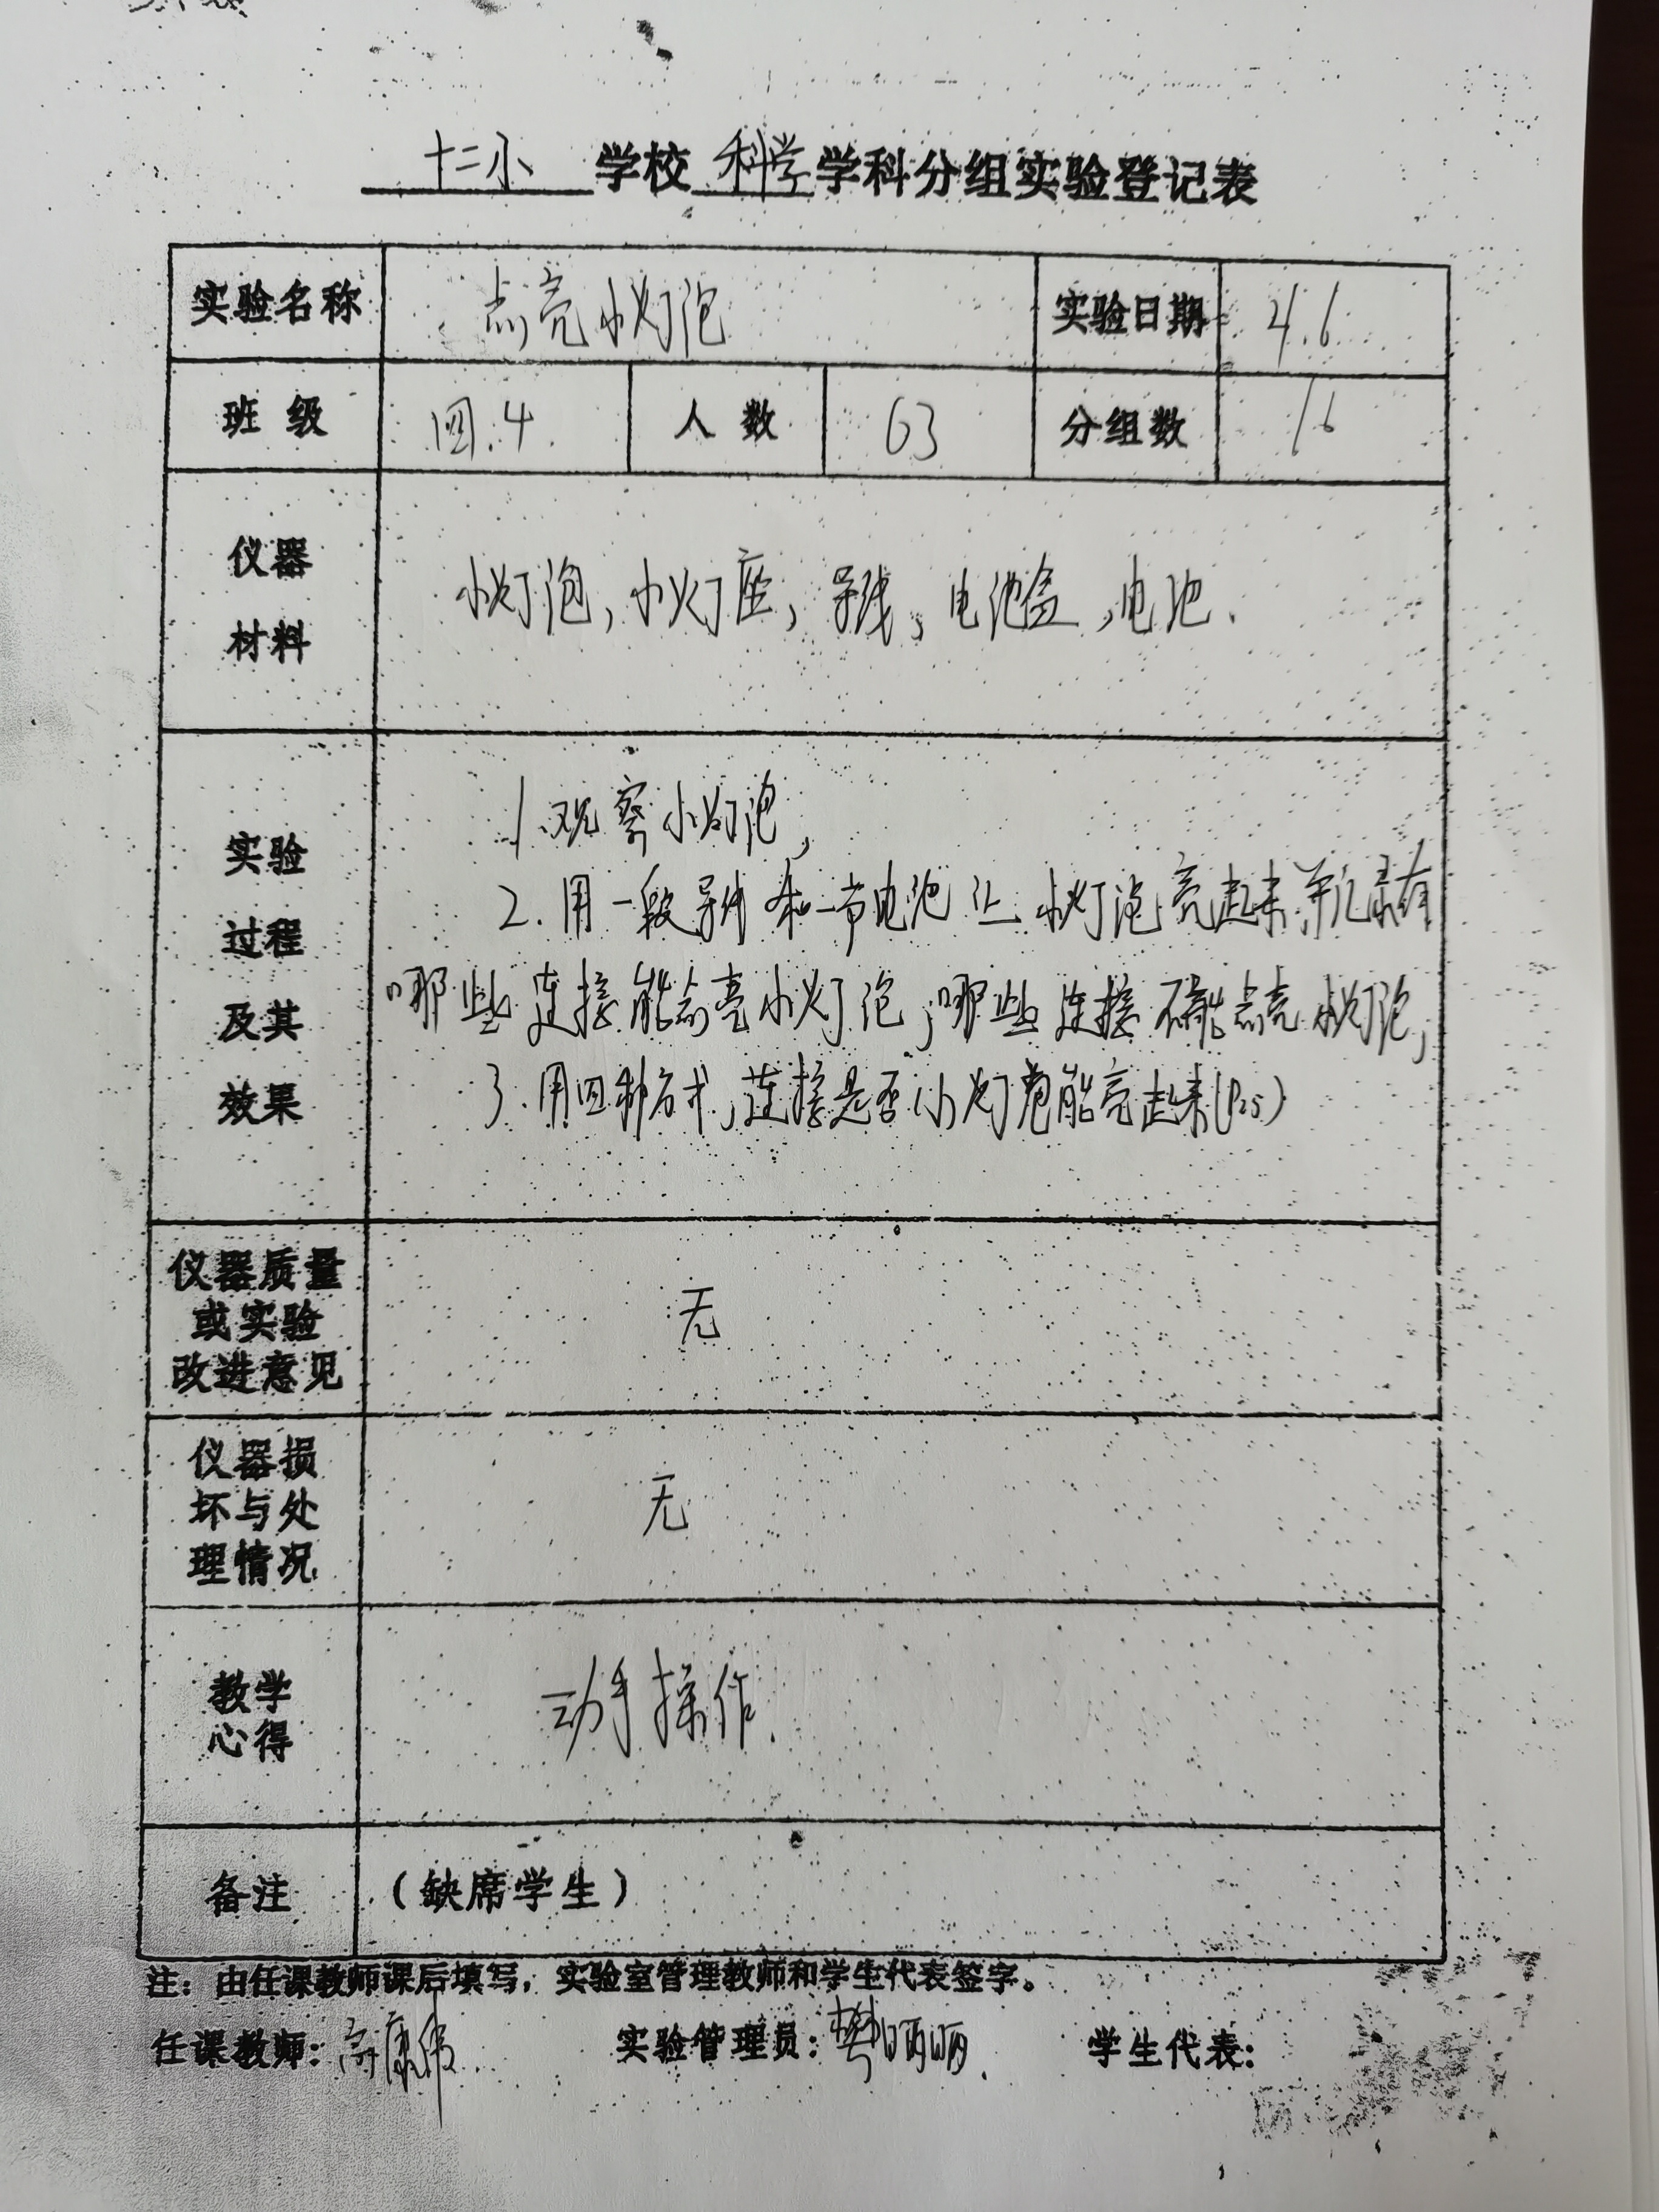 十二小 学校 科学 学科分组实验登记表
实验名称 点亮小灯泡 实验日期 4.6
班 级 四.4 人 数 63 分组数 16
仪器
材料
小灯泡,小灯座,导线,电池盒,电池.
实验
过程
及其
效果
1.观察小灯泡,
2.用一段导线和一节电池让小灯泡亮起来并记录有
哪些连接能点亮小灯泡,哪些连接不能点亮小灯泡,
3.用四种方式,连接是否小灯泡能亮起来(P25)
仪器质量
或实验
改进意见
无
仪器损
坏与处
理情况
无
教学
心得
动手操作.
备注 (缺席学生)
注:由任课教师课后填写,实验室管理教师和学生代表签字。
任课教师: 实验管理员:樊丽丽. 学生代表: